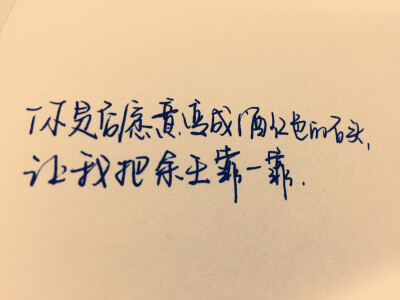 你是否愿意变成酒红色的石头，
让我把余生靠一靠.